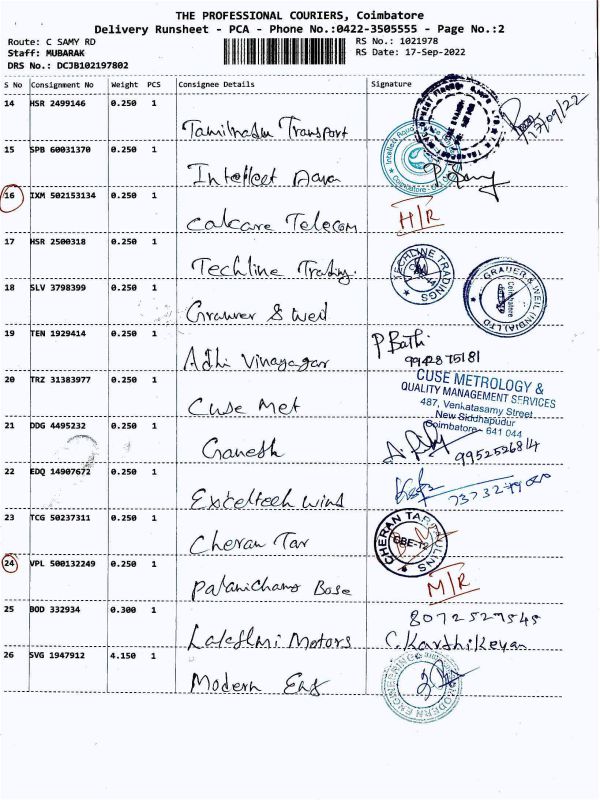 THE PROFESSIONAL COURIERS, Coimbatore
Delivery Runsheet - PCA - Phone No.:0422-3505555 - Page No.:2
Route: C SAMY RD
Staff: MUBARAK
DRS No.: DCJB102197802
RS No.: 1021978
RS Date: 17-Sep-2022
S No Consignment No Weight PCS Consignee Details Signature
14 HSR 2499146 0.250 1 Tamilnadu Transport
17/09/22
15 SPB 60031370 0.250 1 Intellect
16 IXM 502153134 0.250 1 Calcare Telecom H/R
17 HSR 2500318 0.250 1 Techline Trading.
TECHLINE TRADINGS
18 SLV 3798399 0.250 1 Grauer & Weil
GRAUER & WEIL (INDIA) LTD
Coimbatore
19 TEN 1929414 0.250 1 Adhi Vinayagar P Bathi
9942875181
20 TRZ 31383977 0.250 1 Cuse Met
CUSE METROLOGY &
QUALITY MANAGEMENT SERVICES
487, Venkatasamy Street
New Siddhapudur
Coimbatore - 641 044
21 DDG 4495232 0.250 1 Ganesh
9952526814
22 EDQ 14907672 0.250 1 Exceltech Wind
23 TCG 50237311 0.250 1 Cheran Tar
CHERAN TARPAULINS
CBE-12
24 VPL 500132249 0.250 1 Palanichamy Bose M/R
25 BOD 332934 0.300 1 Lakshmi Motors
8072527545
C. Karthikeyan
26 SVG 1947912 4.150 1 Modern Eng
MODERN ENGINEERING